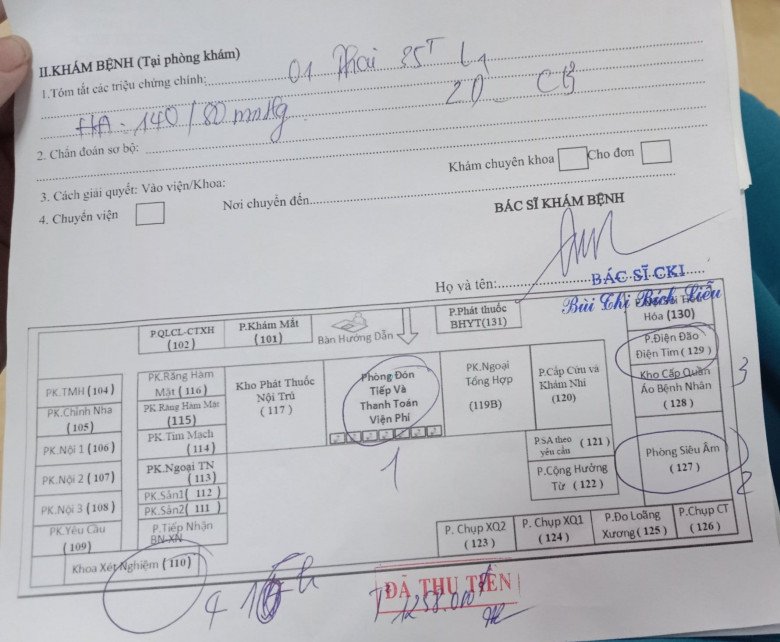 II.KHÁM BỆNH (Tại phòng khám)
1.Tóm tắt các triệu chứng chính: 01 Thai 35T
HA: 140/80 mmHg 2D
2. Chẩn đoán sơ bộ:
3. Cách giải quyết: Vào viện/Khoa: Khám chuyên khoa Cho đơn
4. Chuyển viện Nơi chuyển đến
BÁC SĨ KHÁM BỆNH
Họ và tên: BÁC SĨ CKI
Bùi Thị Bích Liễu
P.QLCL-CTXH
(102)
P.Khám Mắt
(101)
Bàn Hướng Dẫn
P.Phát thuốc
BHYT(131)
Hóa (130)
P.Điện Đão
Điện Tim ( 129 )
Kho Cấp Quần
Áo Bệnh Nhân
(128)
3
PK.TMH (104)
PK.Chỉnh Nha
(105)
PK.Nội 1 (106)
PK.Nội 2 (107)
PK.Nội 3 (108)
PK.Yêu Cầu
(109)
PK.Răng Hàm
Mặt ( 116 )
PK.Răng Hàm Mặt
(115)
PK.Tim Mạch
(114)
PK.Ngoại TN
(113)
PK.Sản1( 112 )
PK.Sản2( 111 )
P.Tiếp Nhận
BN-XN
Kho Phát Thuốc
Nội Trú
( 117 )
Phòng Đón
Tiếp Và
Thanh Toán
Viện Phí
1
PK.Ngoại
Tổng Hợp
(119B)
P.Cấp Cứu và
Khám Nhi
(120)
P.SA theo
yêu cầu (121)
P.Cộng Hưởng
Từ ( 122 )
Phòng Siêu Âm
(127)
2
P. Chụp XQ2
( 123 )
P. Chụp XQ1
( 124 )
P.Đo Loãng
Xương ( 125 )
P.Chụp CT
( 126 )
Khoa Xét Nghiệm ( 110 )
4
ĐÃ THU TIỀN
1258.000đ